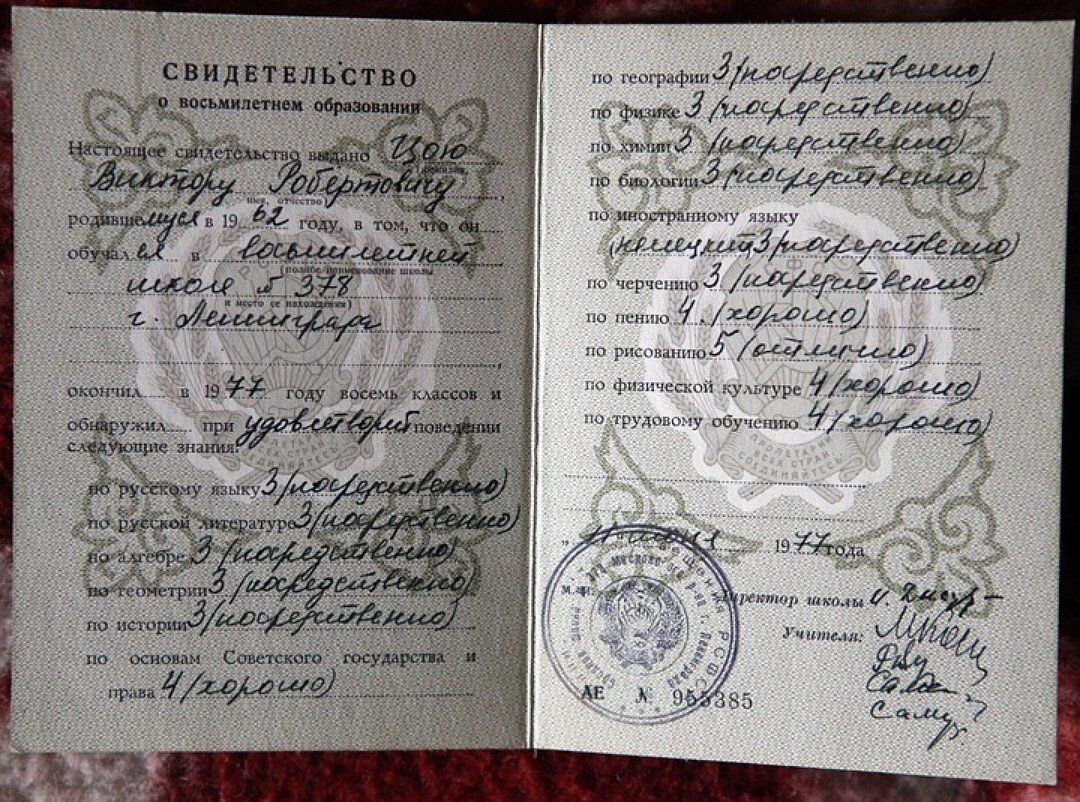 СВИДЕТЕЛЬСТВО
о восьмилетнем образовании
Настоящее свидетельство выдано Цою
(фамилия,
Виктору Робертовичу,
имя, отчество)
родившемуся в 1962 году, в том, что он
обучался в восьмилетней
(полное наименование школы
школе № 378
и место ее нахождения)
г. Ленинграда
окончил в 1977 году восемь классов и
обнаружил при удовлетворит поведении
следующие знания:
по русскому языку 3 (посредственно)
по русской литературе 3 (посредственно)
по алгебре 3 (посредственно)
по геометрии 3 (посредственно)
по истории 3 (посредственно)
по основам Советского государства и
права 4 (хорошо)
по географии 3 (посредственно)
по физике 3 (посредственно)
по химии 3 (посредственно)
по биологии 3 (посредственно)
по иностранному языку
(немецкий) 3 (посредственно)
по черчению 3 (посредственно)
по пению 4. (хорошо)
по рисованию 5 (отлично)
по физической культуре 4 (хорошо)
по трудовому обучению 4 (хорошо)
ПРОЛЕТАРИИ
ВСЕХ СТРАН
СОЕДИНЯЙТЕСЬ
июня 1977 года
М. П.
Директор школы
Учителя:
АЕ № 955385